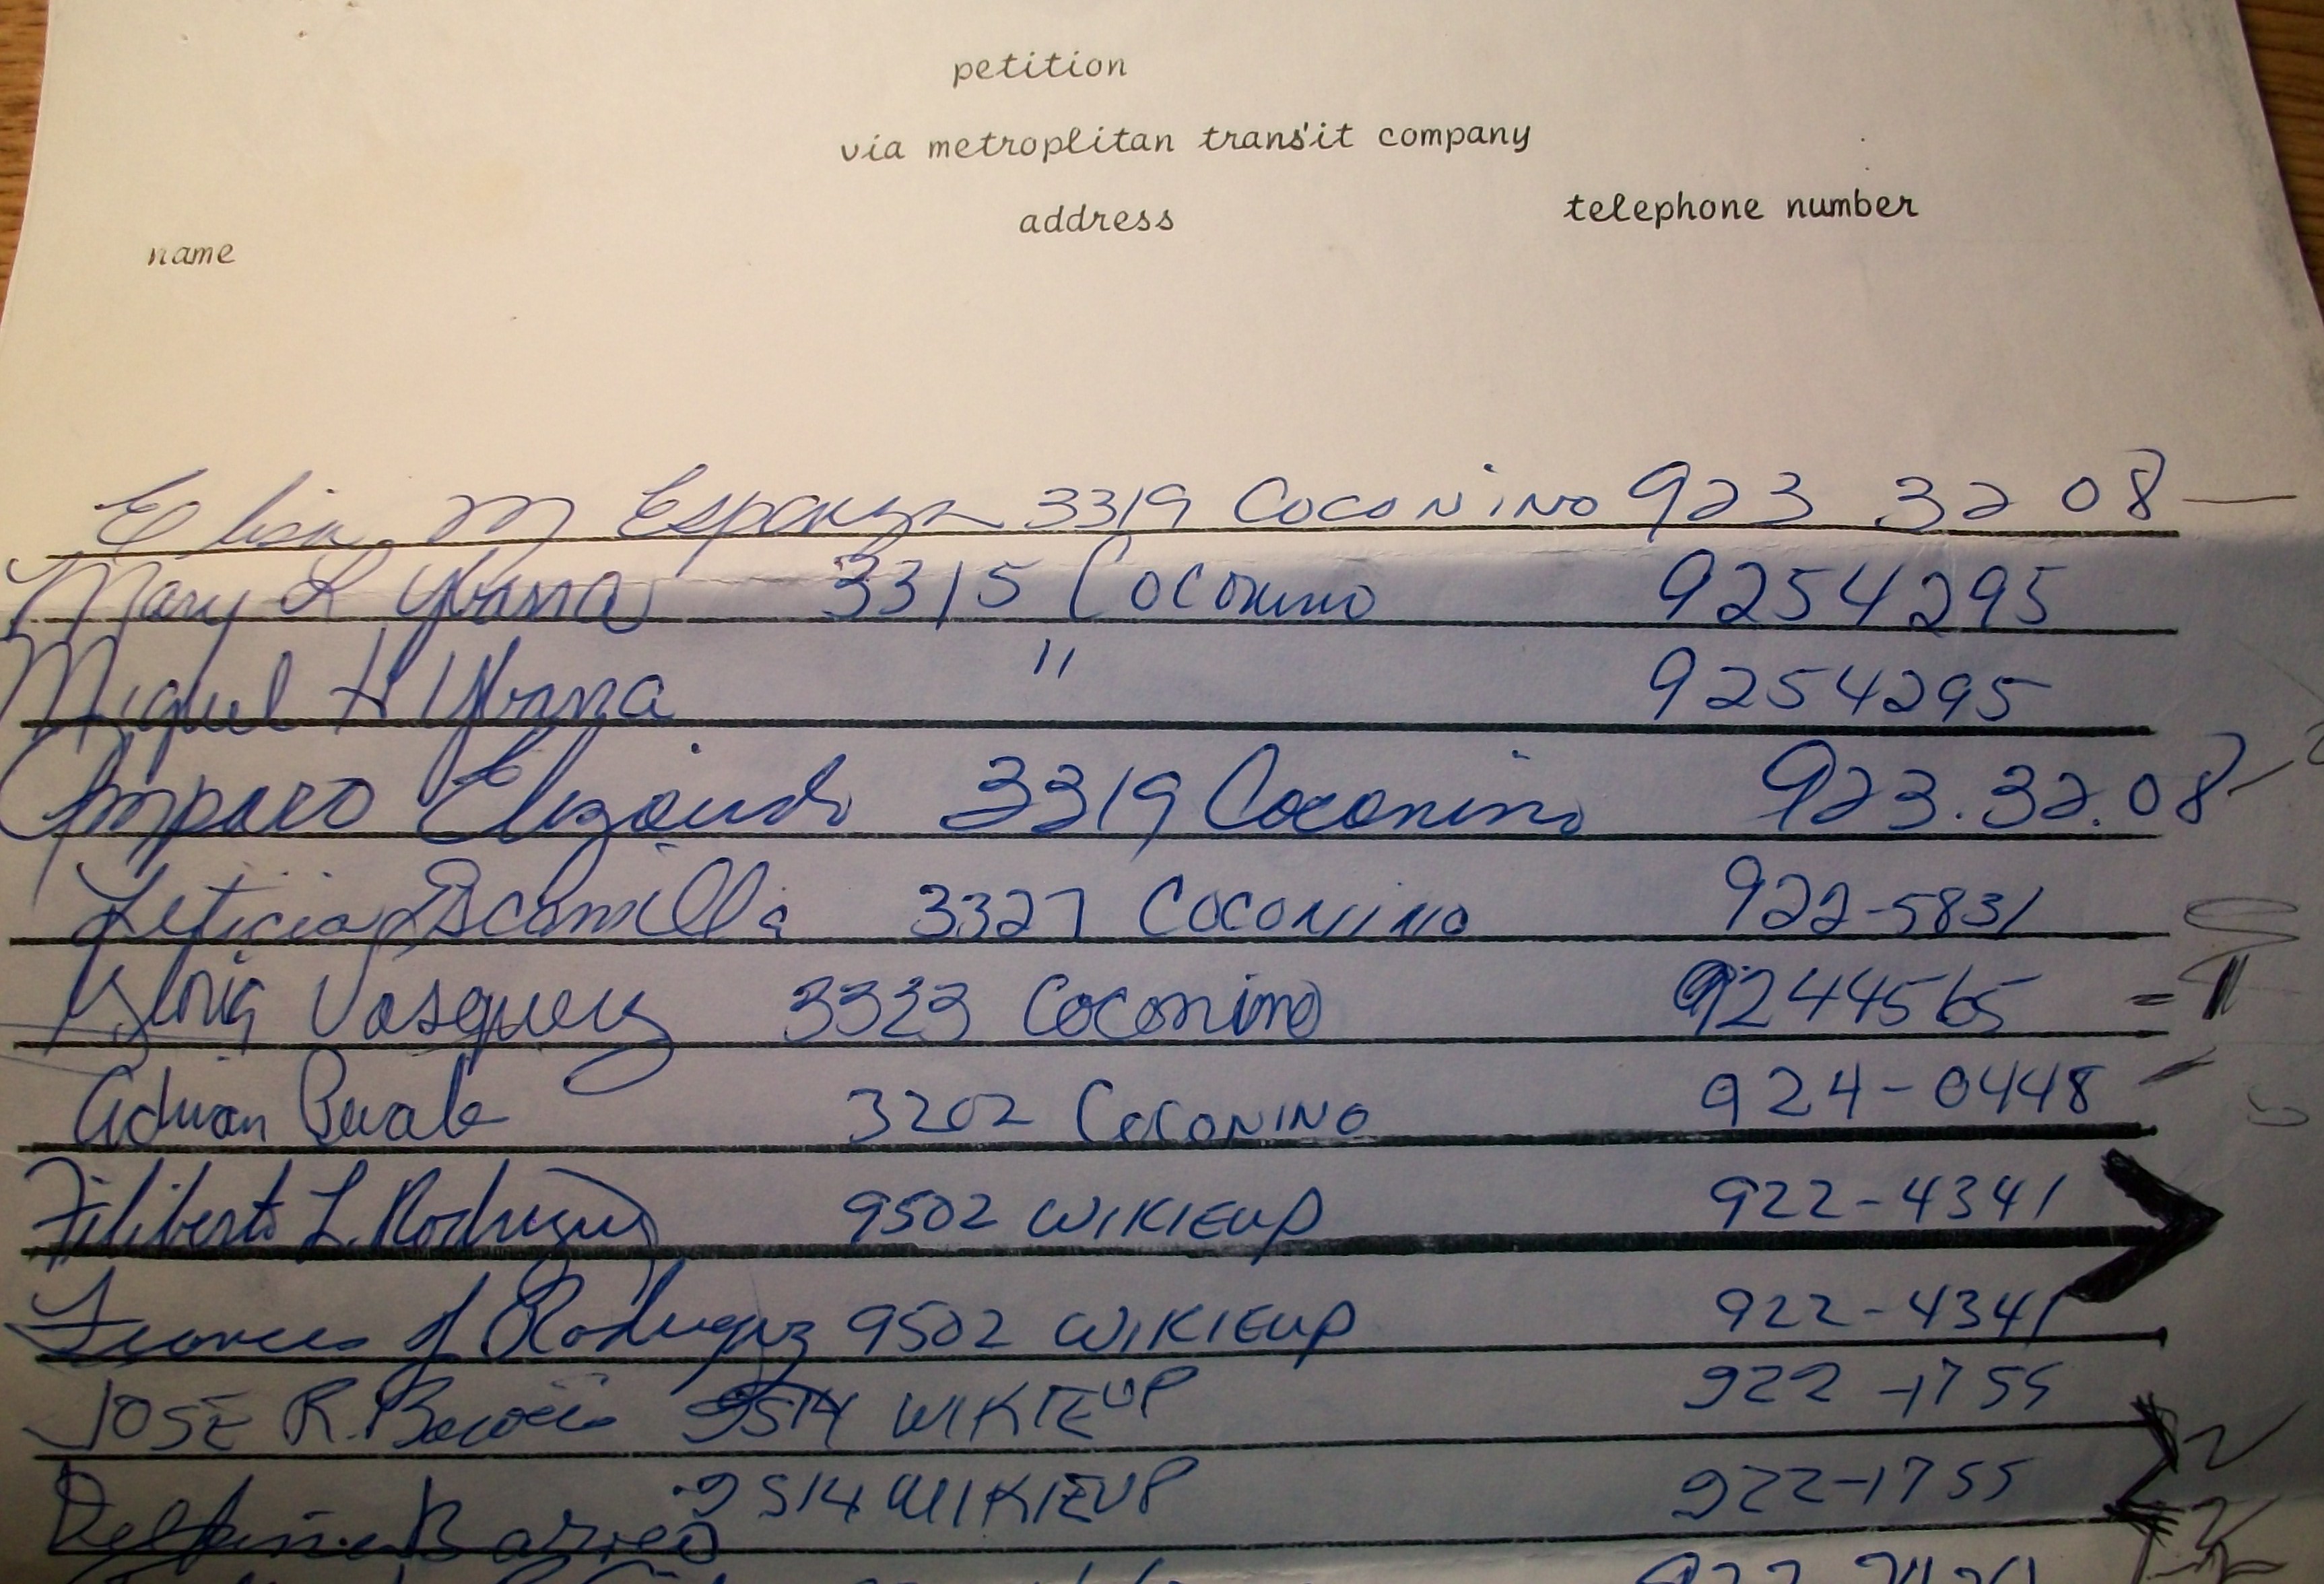 petition
via metroplitan transit company
address telephone number
name
Elisa M Esparza 3319 Coconino 923 32 08
Mary L Ybarra 3315 Coconino 9254295
Miguel H Ybarra " 9254295
Amparo Elizondo 3319 Coconino 923.32.08
Leticia Escamilla 3327 Coconino 922-5831
Gloria Vasquez 3323 Coconino 9244565
Adrian 3202 Coconino 924-0448
Filiberto L. Rodriguez 9502 WIKIEUP 922-4341
Frances J Rodriguez 9502 WIKIEUP 922-4341
JOSE R. 9514 WIKIEUP 922-1755
9514 WIKIEUP 922-1755